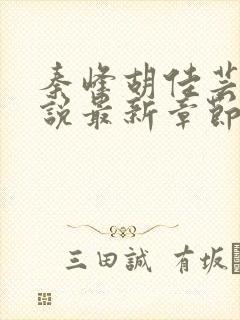 秦峰胡佳芸
说最新章節
三田誠 有坂